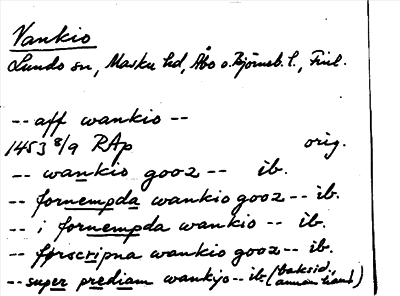 Vankio
Lundo sn, Masku hd, Åbo o. Björneb. l., Finl.
-- aff wankio --
1453 8/9 RAp orig.
-- wankio gooz -- ib.
-- fornempda wankio gooz -- ib.
-- i fornempda wankio -- ib.
-- forscripna wankio gooz -- ib.
-- super prediam wankyo -- ib. (baksid, annan hand)